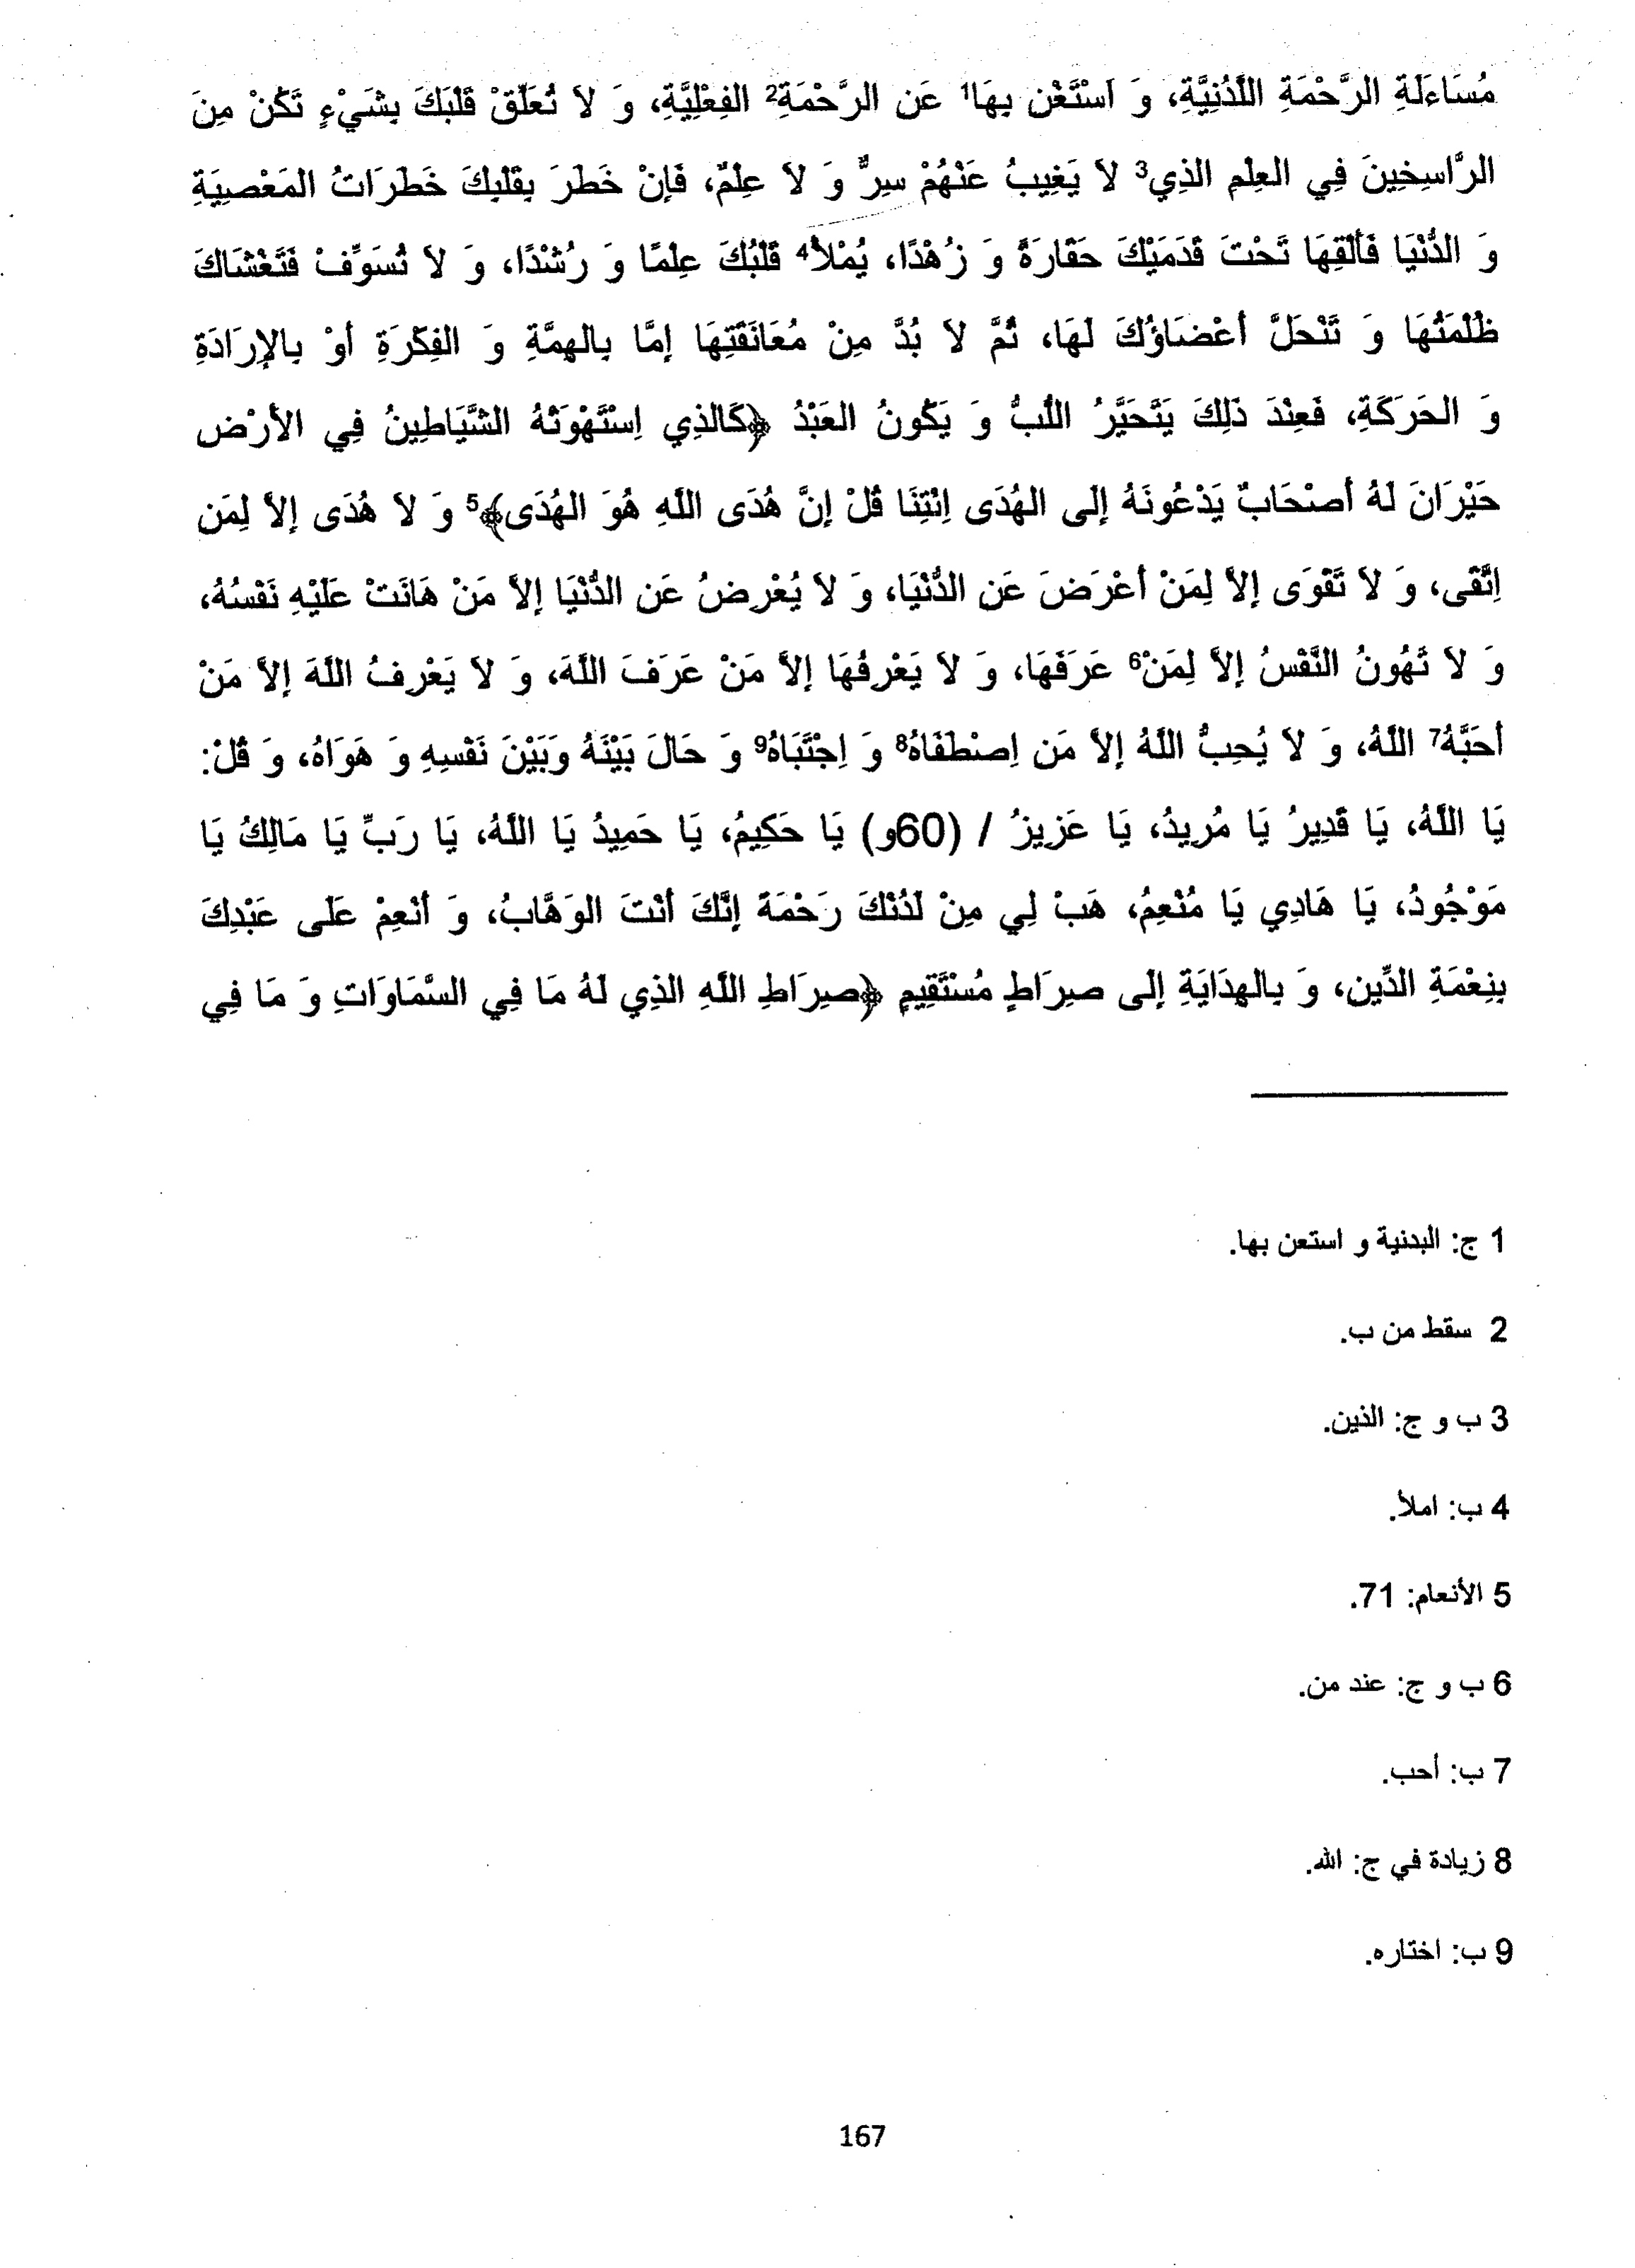 مُسَاءَلَةِ الرَّحْمَةِ اللَّدُنِيَّةِ، وَ اسْتَغْنِ بِهَا1 عَنِ الرَّحْمَةِ2 الفِعْلِيَّةِ، وَ لاَ تُعَلِّقْ قَلْبَكَ بِشَيْءٍ تَكُنْ مِنَ
الرَّاسِخِينَ فِي العِلْمِ الذِي3 لاَ يَغِيبُ عَنْهُمْ سِرٌّ وَ لاَ عِلْمٌ، فَإِنْ خَطَرَ بِقَلْبِكَ خَطَرَاتُ المَعْصِيَةِ
وَ الدُّنْيَا فَأَلْقِهَا تَحْتَ قَدَمَيْكَ حَقَارَةً وَ زُهْدًا، يُمْلأْ4 قَلْبُكَ عِلْمًا وَ رُشْدًا، وَ لاَ تُسَوِّفْ فَتَغْشَاكَ
ظُلْمَتُهَا وَ تَنْحَلَّ أَعْضَاؤُكَ لَهَا، ثُمَّ لاَ بُدَّ مِنْ مُعَانَقَتِهَا إِمَّا بِالهِمَّةِ وَ الفِكْرَةِ أَوْ بِالإِرَادَةِ
وَ الحَرَكَةِ، فَعِنْدَ ذَلِكَ يَتَحَيَّرُ اللُّبُّ وَ يَكُونُ العَبْدُ ﴿كَالذِي اِسْتَهْوَتْهُ الشَّيَاطِينُ فِي الأَرْضِ
حَيْرَانَ لَهُ أَصْحَابٌ يَدْعُونَهُ إِلَى الهُدَى اِئْتِنَا قُلْ إِنَّ هُدَى اللَّهِ هُوَ الهُدَى﴾5 وَ لاَ هُدَى إِلاَّ لِمَنِ
اِتَّقَى، وَ لاَ تَقْوَى إِلاَّ لِمَنْ أَعْرَضَ عَنِ الدُّنْيَا، وَ لاَ يُعْرِضُ عَنِ الدُّنْيَا إِلاَّ مَنْ هَانَتْ عَلَيْهِ نَفْسُهُ،
وَ لاَ تَهُونُ النَّفْسُ إِلاَّ لِمَنْ6 عَرَفَهَا، وَ لاَ يَعْرِفُهَا إِلاَّ مَنْ عَرَفَ اللَّهَ، وَ لاَ يَعْرِفُ اللَّهَ إِلاَّ مَنْ
أَحَبَّهُ7 اللَّهُ، وَ لاَ يُحِبُّ اللَّهُ إِلاَّ مَنِ اِصْطَفَاهُ8 وَ اِجْتَبَاهُ9 وَ حَالَ بَيْنَهُ وَبَيْنَ نَفْسِهِ وَ هَوَاهُ، وَ قُلْ:
يَا اللَّهُ، يَا قَدِيرُ يَا مُرِيدُ، يَا عَزِيزُ / (60و) يَا حَكِيمُ، يَا حَمِيدُ يَا اللَّهُ، يَا رَبِّ يَا مَالِكُ يَا
مَوْجُودُ، يَا هَادِي يَا مُنْعِمُ، هَبْ لِي مِنْ لَدُنْكَ رَحْمَةً إِنَّكَ أَنْتَ الوَهَّابُ، وَ أَنْعِمْ عَلَى عَبْدِكَ
بِنِعْمَةِ الدِّينِ، وَ بِالهِدَايَةِ إِلَى صِرَاطٍ مُسْتَقِيمٍ ﴿صِرَاطِ اللَّهِ الذِي لَهُ مَا فِي السَّمَاوَاتِ وَ مَا فِي
1 ج: البدنية و استعن بها.
2 سقط من ب.
3 ب و ج: الذين.
4 ب: املأ.
5 الأنعام: 71.
6 ب و ج: عند من.
7 ب: أحب.
8 زيادة في ج: الله.
9 ب: اختاره.
167